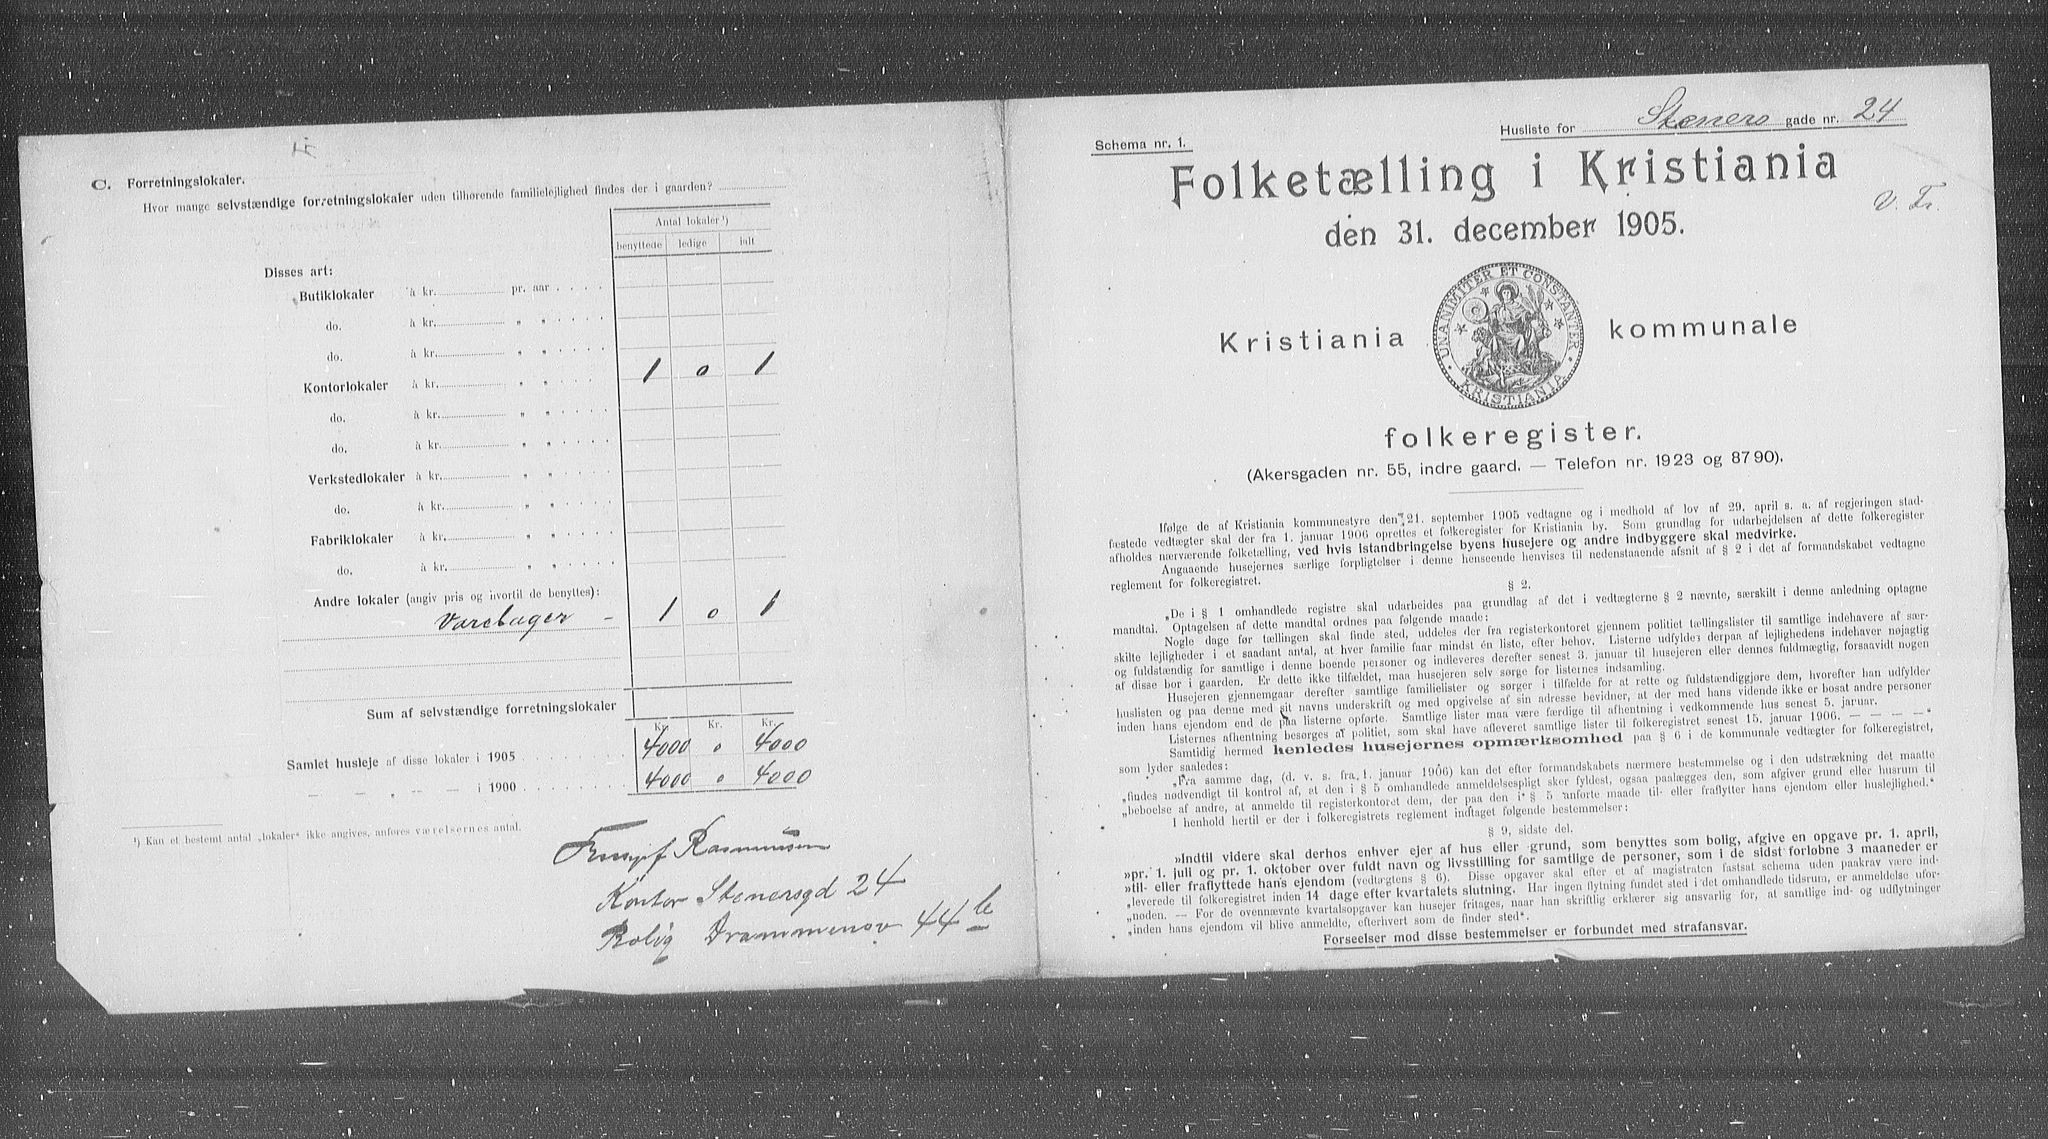 C. Forretningslokaler.
Hvor mange selvstændige forretningslokaler uden tilhørende familielejlighed findes der i gaarden?
Antal lokaler ¹)
benyttede ledige ialt
Disses art:
Butiklokaler à kr. pr. aar
do. à kr. " "
do. à kr. " "
Kontorlokaler à kr. " " 1 0 1
do. à kr. " "
do. à kr. " "
Verkstedlokaler à kr. " "
do. à kr. " "
Fabriklokaler à kr. " "
do. à kr. " "
Andre lokaler (angiv pris og hvortil de benyttes):
Varelager - 1 0 1
Sum af selvstændige forretningslokaler
Kr. Kr. Kr.
Samlet husleje af disse lokaler i 1905 4000 0 4000
— — „ — — i 1900 4000 0 4000
¹) Kan et bestemt antal „lokaler“ ikke angives, anføres værelsernes antal.
Rasmussen
Kontor Stenersgd 24
Bolig Drammensv 44 b
Husliste for Steners gade nr. 24
Schema nr. 1.
Folketælling i Kristiania
V. Fr.
den 31. december 1905.
UNANIMITER ET CONSTANTER
KRISTIANIA
Kristiania kommunale
folkeregister.
(Akersgaden nr. 55, indre gaard. — Telefon nr. 1923 og 8790).
Ifølge de af Kristiania kommunestyre den 21. september 1905 vedtagne og i medhold af lov af 29. april s. a. af regjeringen stad-
fæstede vedtægter skal der fra 1. januar 1906 oprettes et folkeregister for Kristiania by. Som grundlag for udarbejdelsen af dette folkeregister
afholdes nærværende folketælling, ved hvis istandbringelse byens husejere og andre indbyggere skal medvirke.
Angaaende husejernes særlige forpligtelser i denne henseende henvises til nedenstaaende afsnit af § 2 i det af formandskabet vedtagne
reglement for folkeregistret.
§ 2.
„De i § 1 omhandlede registre skal udarbeides paa grundlag af det i vedtægterne § 2 nævnte, særskilt i denne anledning optagne
mandtal. Optagelsen af dette mandtal ordnes paa følgende maade:
Nogle dage før tællingen skal finde sted, uddeles der fra registerkontoret gjennem politiet tællingslister til samtlige indehavere af sær-
skilte lejligheder i et saadant antal, at hver familie faar mindst én liste, efter behov. Listerne udfyldes derpaa af lejlighedens indehaver nøjagtig
og fuldstændig for samtlige i denne boende personer og indleveres derefter senest 3. januar til husejeren eller dennes fuldmægtig, forsaavidt nogen
af disse bor i gaarden. Er dette ikke tilfældet, maa husejeren selv sørge for listernes indsamling.
Husejeren gjennemgaar derefter samtlige familielister og sørger i tilfælde for at rette og fuldstændiggjøre dem, hvorefter han udfylder
huslisten og paa denne med sit navns underskrift og med opgivelse af sin adresse bevidner, at der med hans vidende ikke er bosat andre personer
inden hans ejendom end de paa listerne opførte. Samtlige lister maa være færdige til afhentning i vedkommende hus senest 5. januar.
Listernes afhentning besørges af politiet, som skal have afleveret samtlige lister til folkeregistret senest 15. januar 1906. — — — —“
Samtidig hermed henledes husejernes opmærksomhed paa § 6 i de kommunale vedtægter for folkeregistret,
som lyder saaledes:
„Fra samme dag, (d. v. s. fra 1. januar 1906) kan det efter formandskabets nærmere bestemmelse og i den udstrækning det maatte
„findes nødvendigt til kontrol af, at den i § 5 omhandlede anmeldelsespligt sker fyldest, ogsaa paalægges den, som afgiver grund eller husrum til
„beboelse af andre, at anmelde til registerkontoret dem, der paa den i § 5 anførte maade til- eller fraflytter hans ejendom eller huslejlighed.“
I henhold hertil er der i folkeregistrets reglement indtaget følgende bestemmelser:
§ 9, sidste del.
»Indtil videre skal derhos enhver ejer af hus eller grund, som benyttes som bolig, afgive en opgave pr. 1. april,
»pr. 1. juli og pr. 1. oktober over fuldt navn og livsstilling for samtlige de personer, som i de sidst forløbne 3 maaneder er
»til- eller fraflyttede hans ejendom (vedtægtens § 6). Disse opgaver skal efter et af magistraten fastsat schema uden paakrav være ind-
„leverede til folkeregistret inden 14 dage efter kvartalets slutning. Har ingen flytning fundet sted i det omhandlede tidsrum, er anmeldelse ufor-
„nøden. — For de ovennævnte kvartalsopgaver kan husejer fritages, naar han skriftlig erklærer sig ansvarlig for, at samtlige ind- og udflytninger
„inden hans ejendom vil blive anmeldte, efterhvert som de finder sted“.
Forseelser mod disse bestemmelser er forbundet med strafansvar.